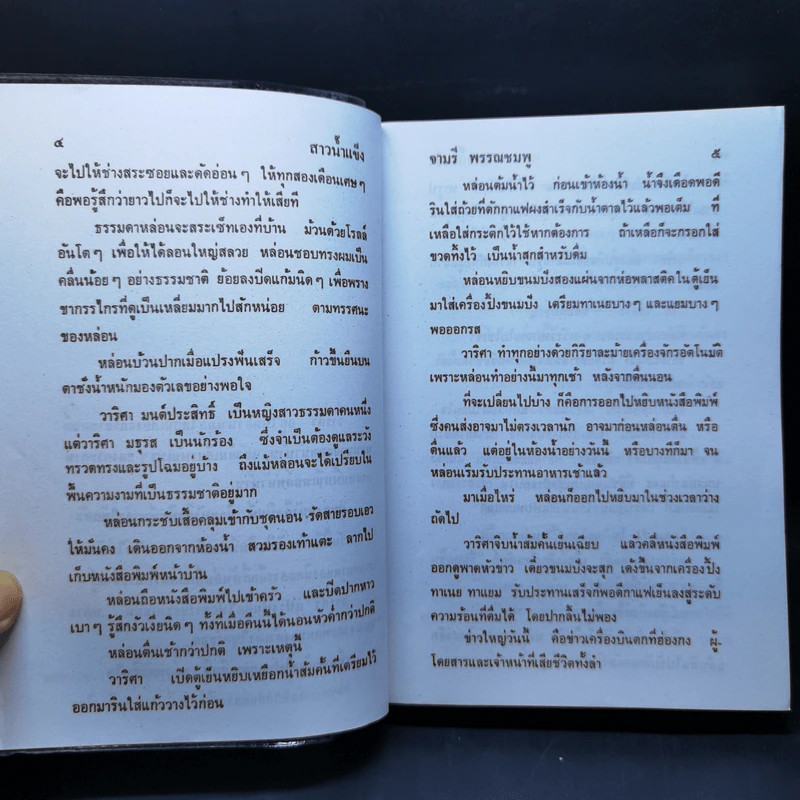 ๔ สาวน้ำแข็ง
จะไปให้ช่างสระซอยและดัดอ่อนๆ ให้ทุกสองเดือนเศษๆ
คือพอรู้สึกว่ายาวไปก็จะไปให้ช่างทำให้เสียที
ธรรมดาหล่อนจะสระเซ็ทเองที่บ้าน ม้วนด้วยโรลล์
อันโตๆ เพื่อให้ได้ลอนใหญ่สลวย หล่อนชอบทรงผมเป็น
คลื่นน้อยๆ อย่างธรรมชาติ ย้อยลงปิดแก้มนิดๆ เพื่อพราง
ขากรรไกรที่ดูเป็นเหลี่ยมมากไปสักหน่อย ตามทรรศนะ
ของหล่อน
หล่อนบ้วนปากเมื่อแปรงฟันเสร็จ ก้าวขึ้นยืนบน
ตาชั่งน้ำหนักมองตัวเลขอย่างพอใจ
วาริศา มนต์ประสิทธิ์ เป็นหญิงสาวธรรมดาคนหนึ่ง
แต่วาริศา มธุรส เป็นนักร้อง ซึ่งจำเป็นต้องดูแลระวัง
ทรวดทรงและรูปโฉมอยู่บ้าง ถึงแม้หล่อนจะได้เปรียบใน
พื้นความงามที่เป็นธรรมชาติอยู่มาก
หล่อนกระชับเสื้อคลุมเข้ากับชุดนอน รัดสายรอบเอว
ให้มั่นคง เดินออกจากห้องน้ำ สวมรองเท้าแตะ ลากไป
เก็บหนังสือพิมพ์หน้าบ้าน
หล่อนถือหนังสือพิมพ์ไปเข้าครัว และปิดปากหาว
เบาๆ รู้สึกงัวเงียนิดๆ ทั้งที่เมื่อคืนนี้ได้นอนหัวค่ำกว่าปกติ
หล่อนตื่นเช้ากว่าปกติ เพราะเหตุนี้
วาริศา เปิดตู้เย็นหยิบเหยือกน้ำส้มคั้นที่เตรียมไว้
ออกมารินใส่แก้ววางไว้ก่อน
จามรี พรรณชมพู ๕
หล่อนต้มน้ำไว้ ก่อนเข้าห้องน้ำ น้ำจึงเดือดพอดี
รินใส่ถ้วยที่ตักกาแฟผงสำเร็จกับน้ำตาลไว้แล้วพอเต็ม ที่
เหลือใส่กระติกไว้ใช้หากต้องการ ถ้าเหลือก็จะกรอกใส่
ขวดทิ้งไว้ เป็นน้ำสุกสำหรับดื่ม
หล่อนหยิบขนมปังสองแผ่นจากห่อพลาสติคในตู้เย็น
มาใส่เครื่องปิ้งขนมปัง เตรียมทาเนยบางๆ และแยมบางๆ
พอออกรส
วาริศา ทำทุกอย่างด้วยกิริยาละม้ายเครื่องจักรอัตโนมัติ
เพราะหล่อนทำอย่างนี้มาทุกเช้า หลังจากตื่นนอน
ที่จะเปลี่ยนไปบ้าง ก็คือการออกไปหยิบหนังสือพิมพ์
ซึ่งคนส่งอาจมาไม่ตรงเวลานัก อาจมาก่อนหล่อนตื่น หรือ
ตื่นแล้ว แต่อยู่ในห้องน้ำอย่างวันนี้ หรือบางทีก็มา จน
หล่อนเริ่มรับประทานอาหารเช้าแล้ว
มาเมื่อไหร่ หล่อนก็ออกไปหยิบมาในช่วงเวลาว่าง
ถัดไป
วาริศาจิบน้ำส้มคั้นเย็นเฉียบ แล้วคลี่หนังสือพิมพ์
ออกดูพาดหัวข่าว เดี๋ยวขนมปังจะสุก เด้งขึ้นจากเครื่องปิ้ง
ทาเนย ทาแยม รับประทานเสร็จก็พอดีกาแฟเย็นลงสู่ระดับ
ความร้อนที่ดื่มได้ โดยปากลิ้นไม่พอง
ข่าวใหญ่วันนี้ คือข่าวเครื่องบินตกที่ฮ่องกง ผู้-
โดยสารและเจ้าหน้าที่เสียชีวิตทั้งลำ